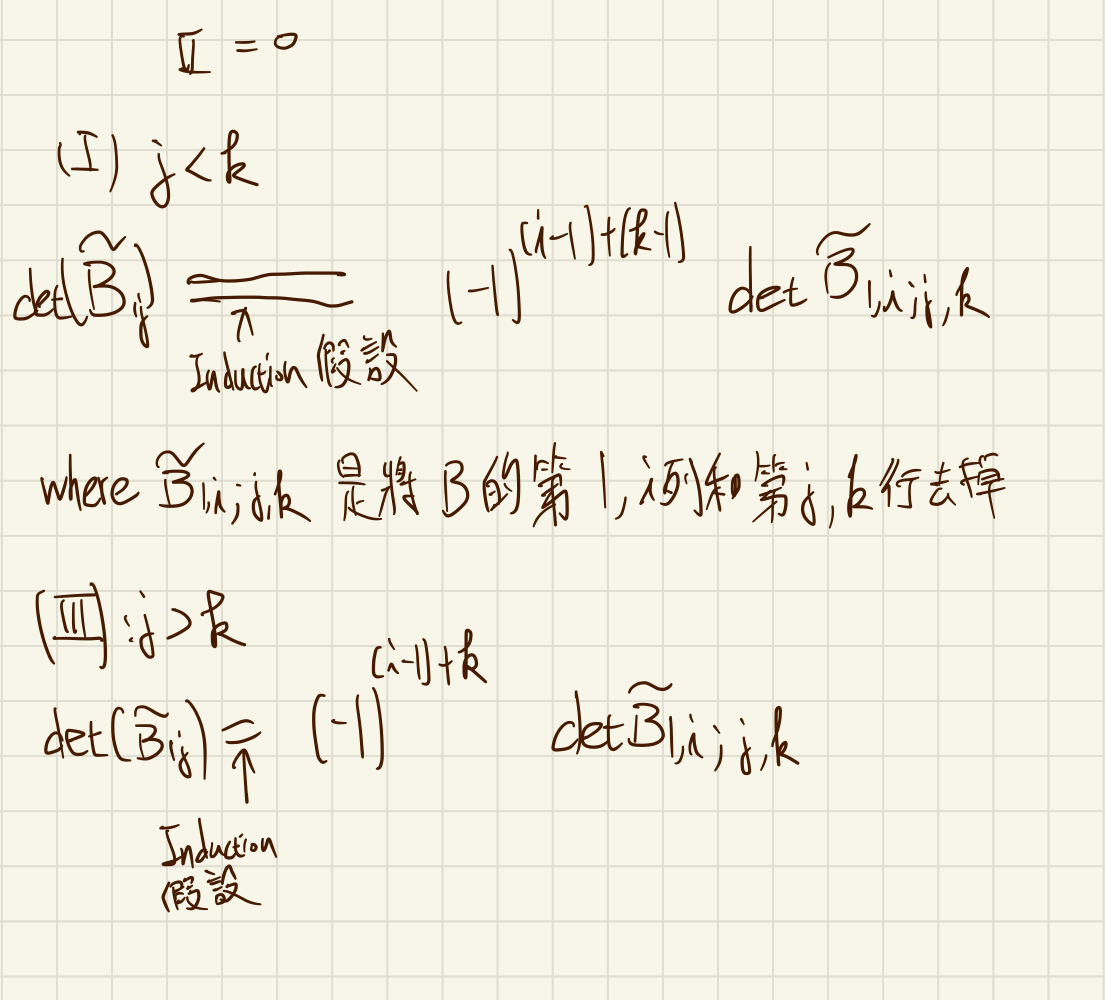 II = 0
(I) j < k
det(B̃ij) = (-1)^{(i-1)+(k-1)} det B̃1,i;j,k
↑
Induction 假設
where B̃1,i;j,k 是將 B 的第 1, i列和第 j, k 行去掉
(III) : j > k
det(B̃ij) = (-1)^{(i-1)+k} det B̃1,i;j,k
↑
Induction
假設